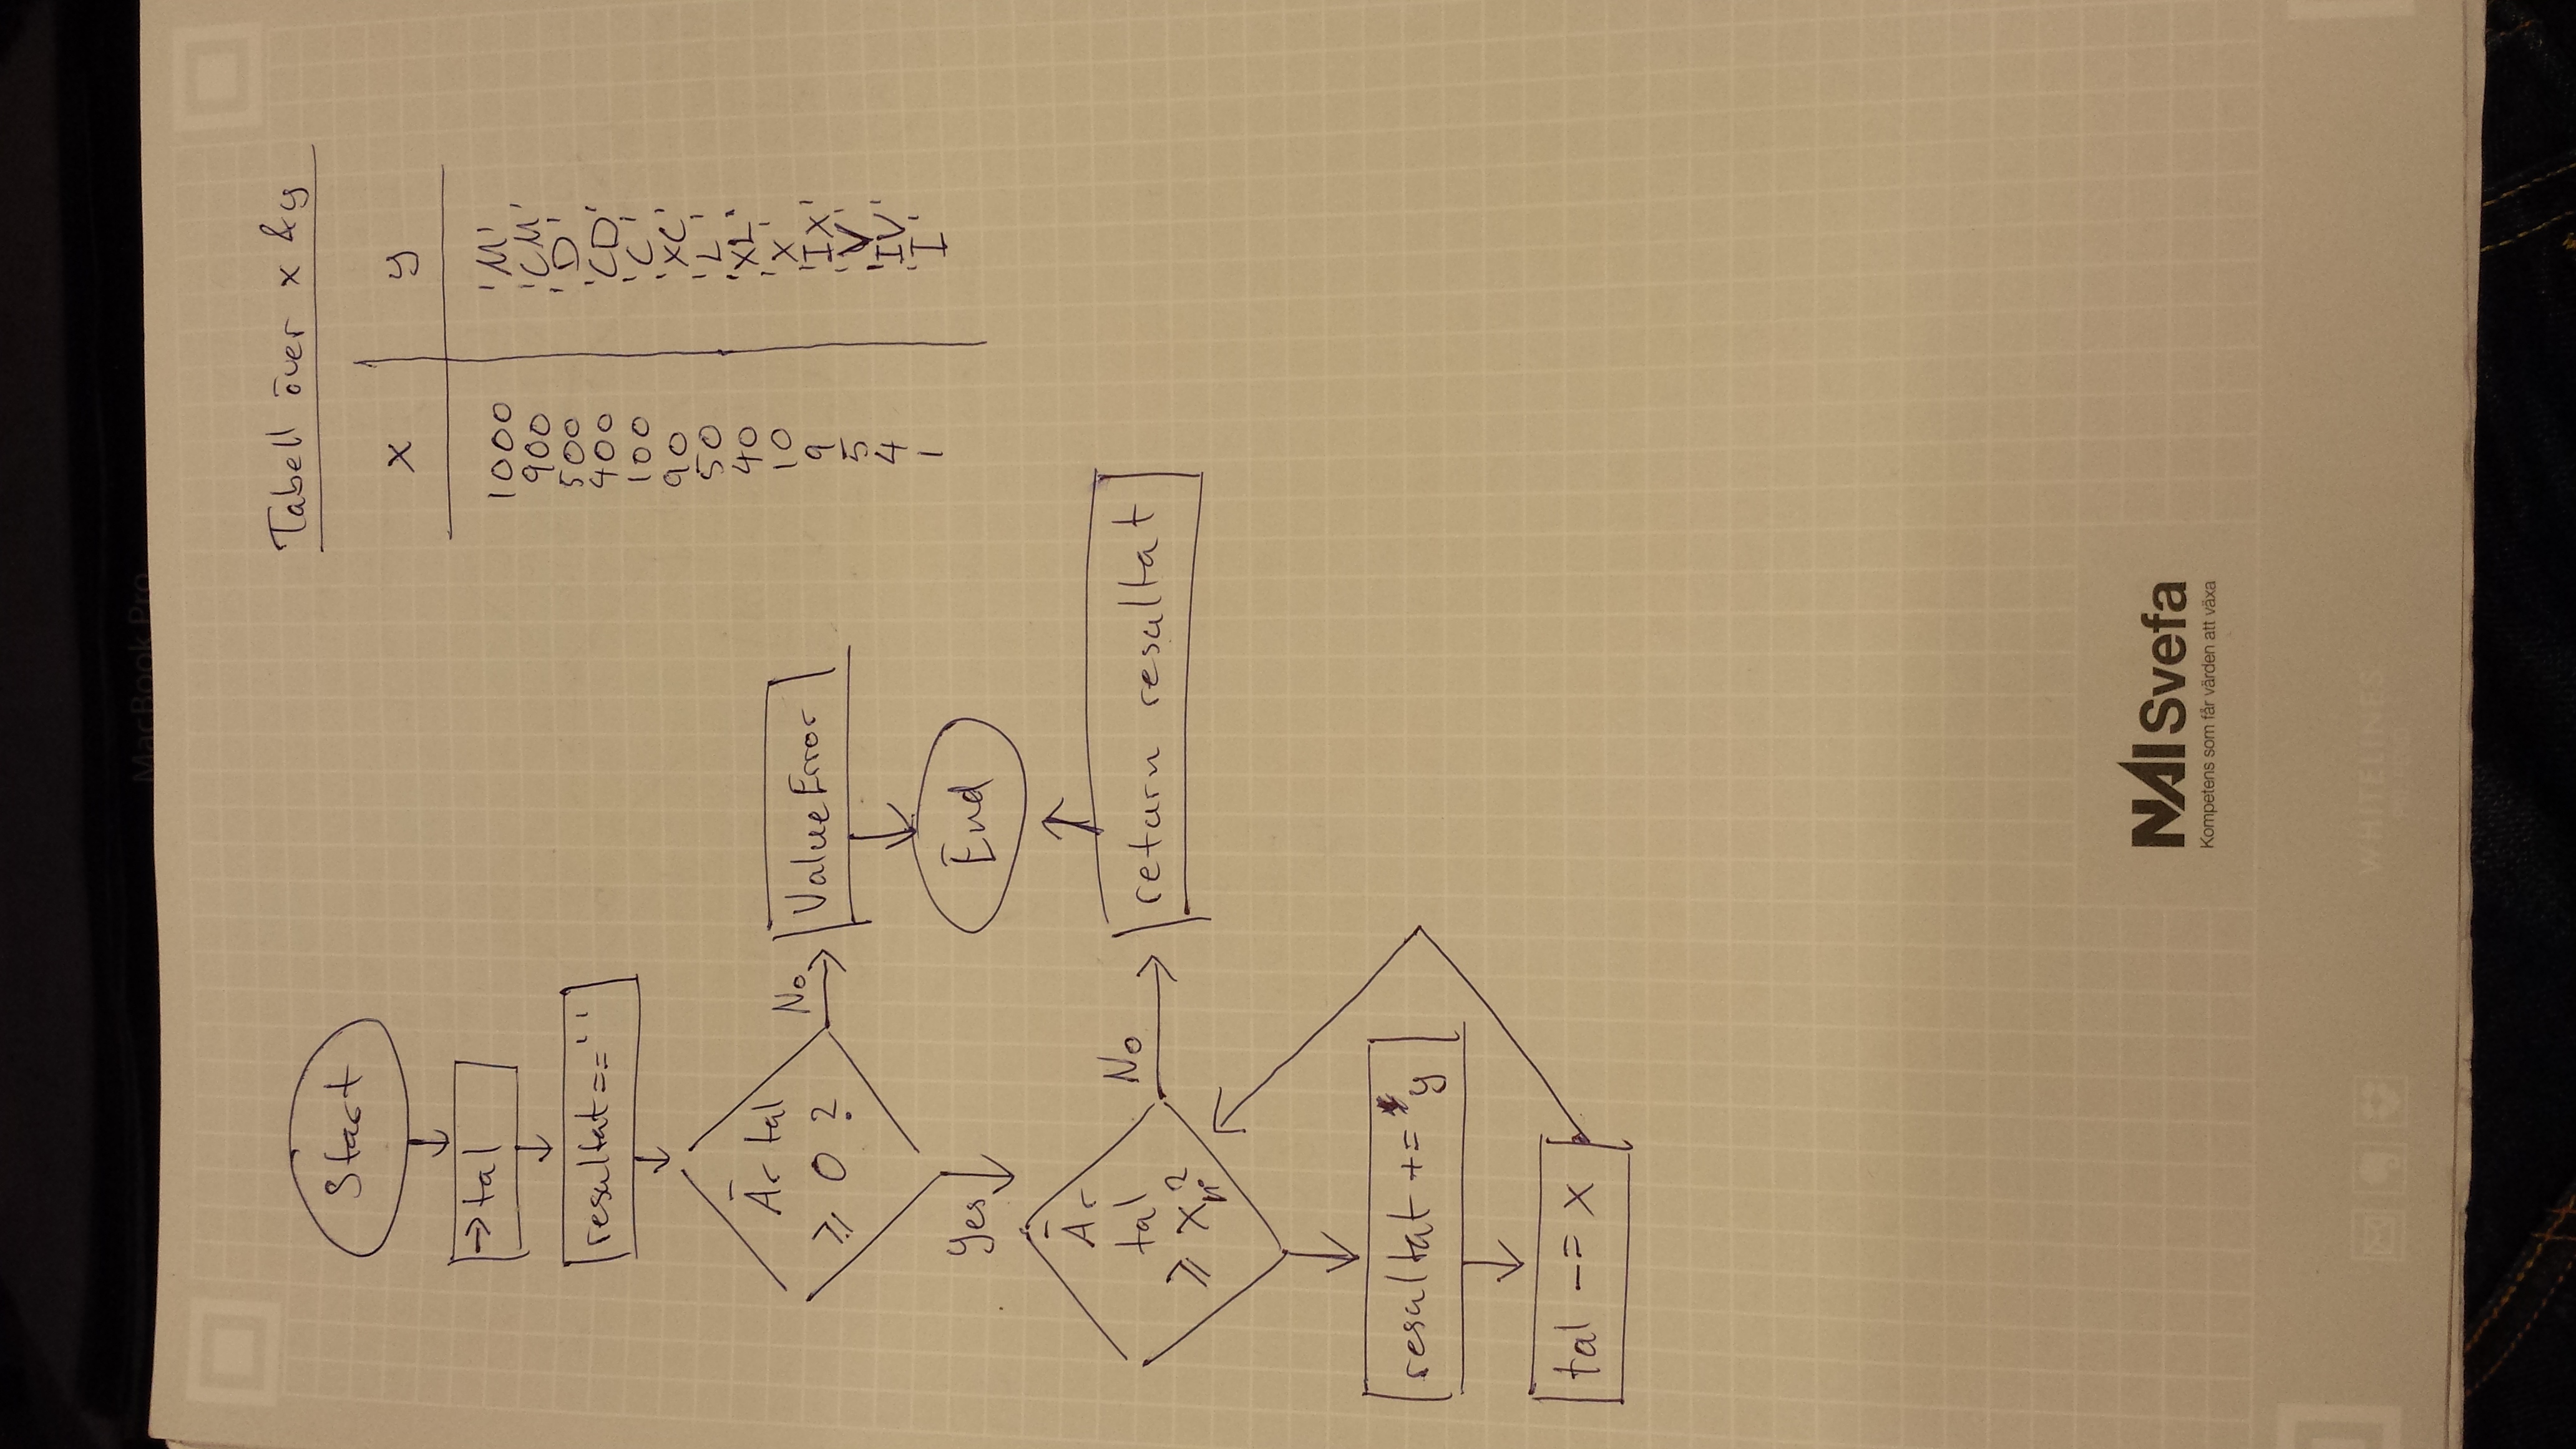 MacBook Pro
Start
→ tal
resultat == ' '
Är tal
≥ 0 ?
No
ValueError
End
Yes
Är
tal
≥ xn?
No
return resultat
resultat += y
tal -= x
Tabell över x & y
x y
1000 'M'
900 'CM'
500 'D'
400 'CD'
100 'C'
90 'XC'
50 'L'
40 'XL'
10 'X'
9 'IX'
5 'V'
4 'IV'
1 'I'
NAI Svefa
Kompetens som får värden att växa
WHITELINES